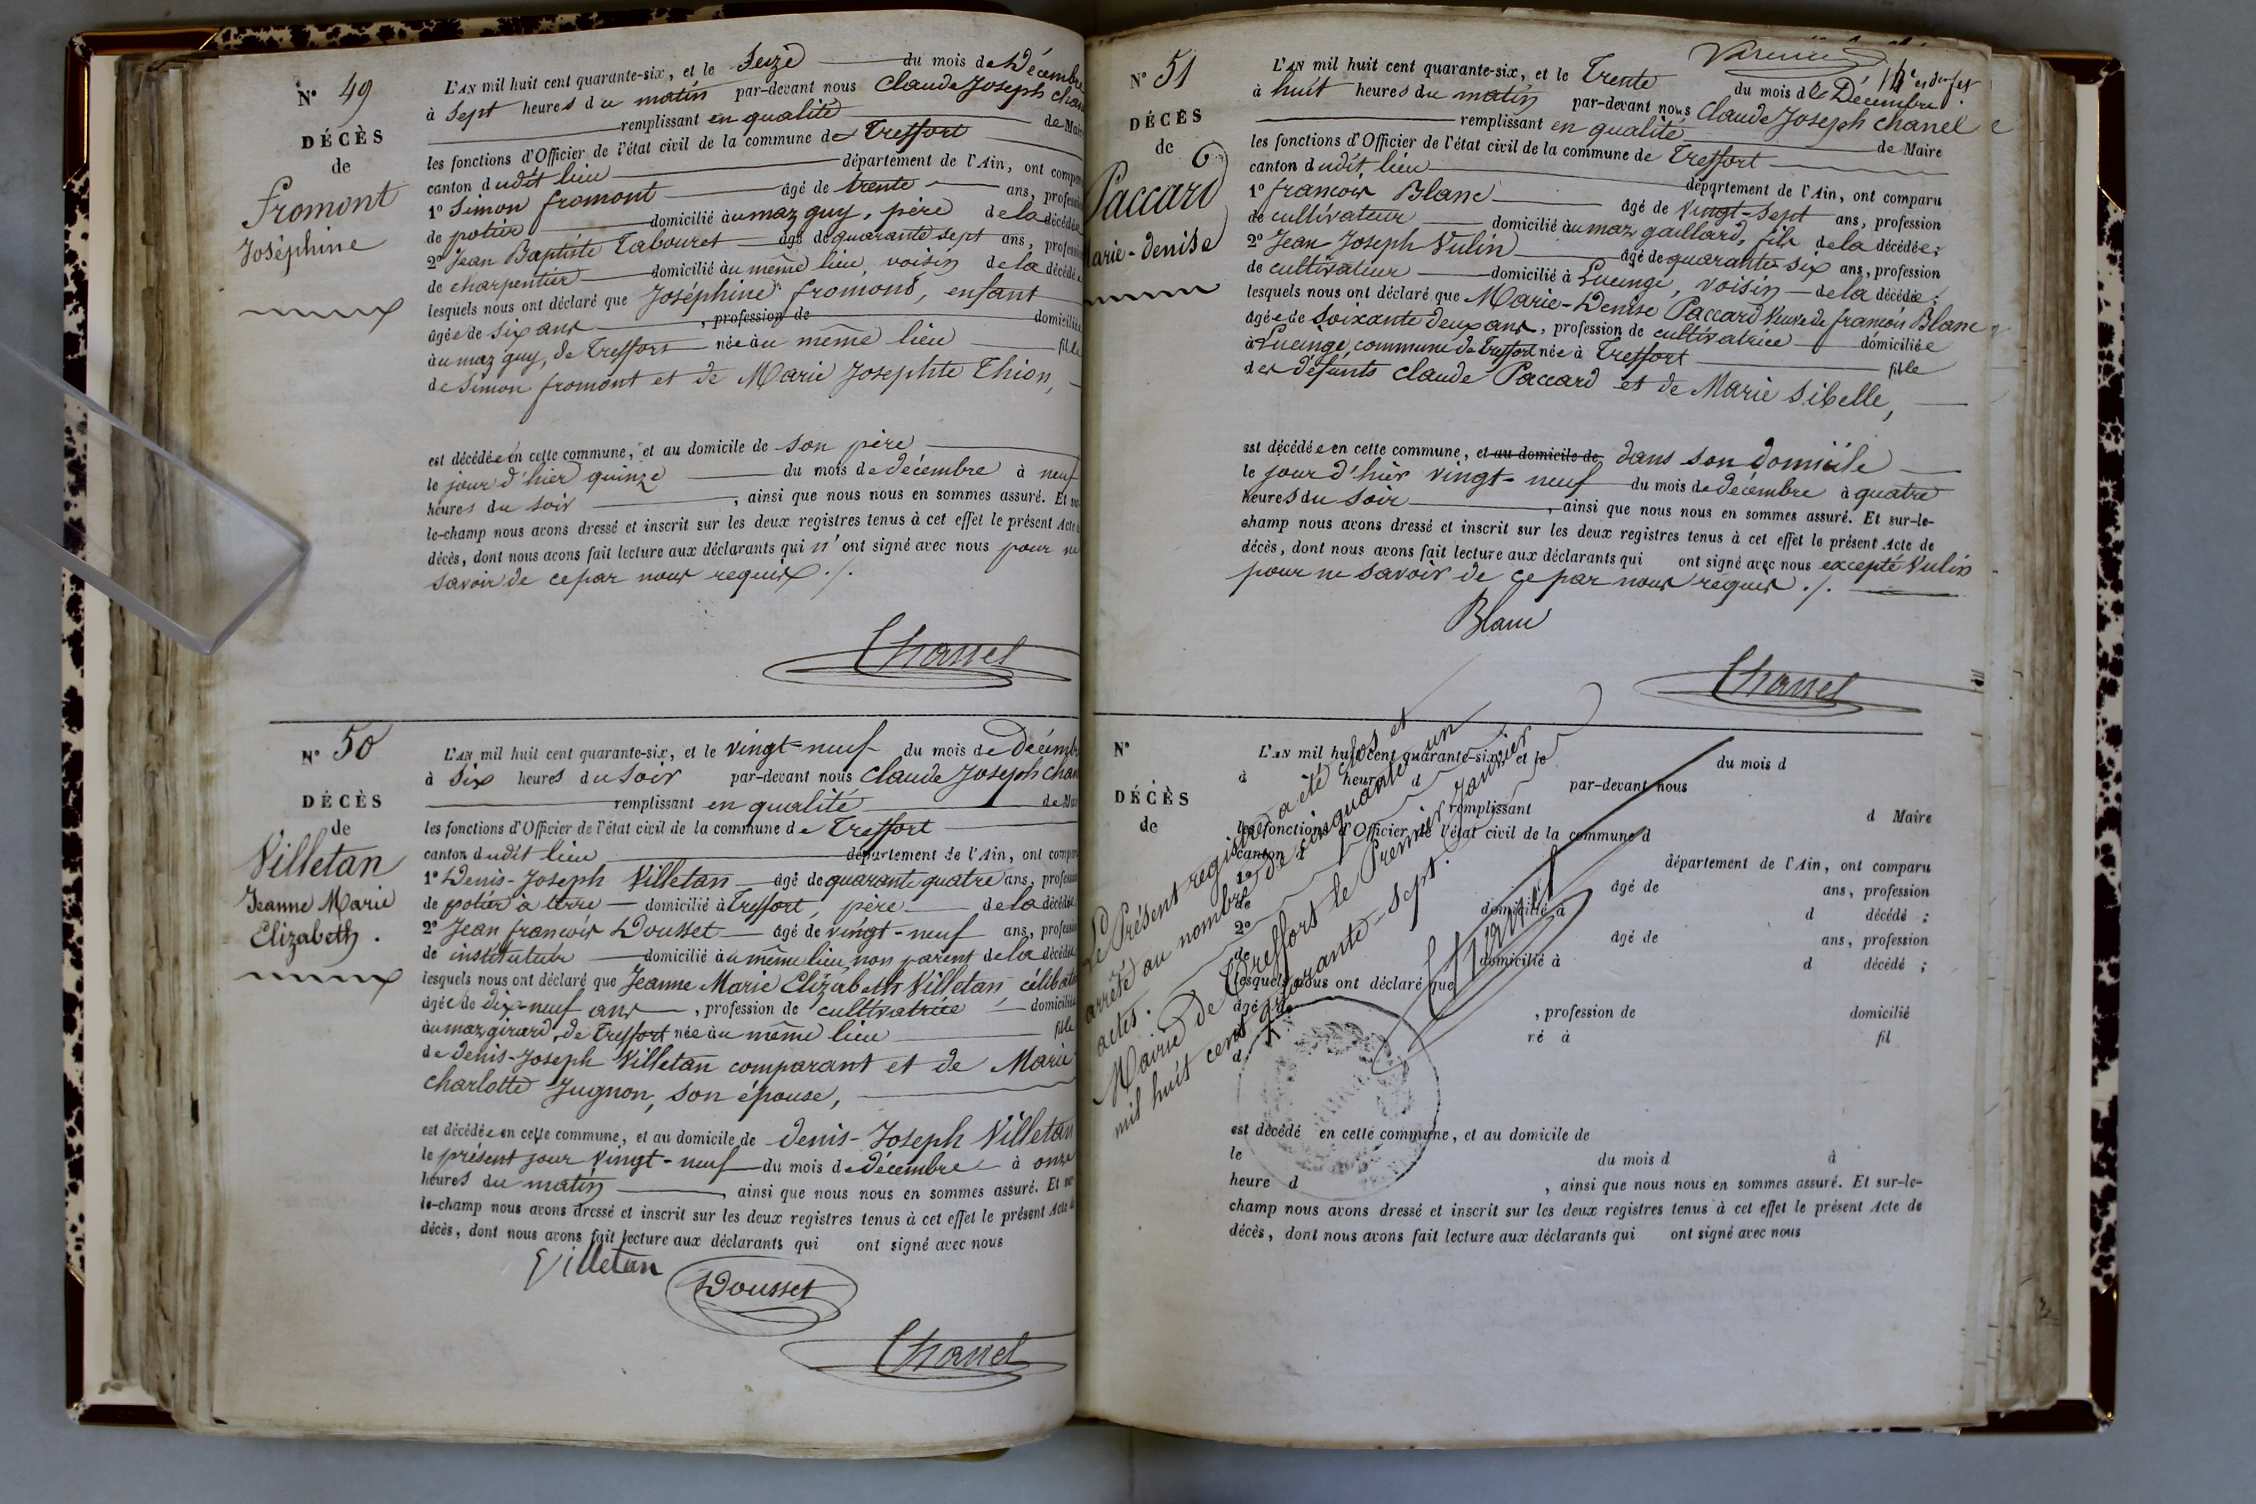 N° 49
DÉCÈS
de
fromont
Joséphine
L'AN mil huit cent quarante-six, et le Seize du mois de Décembre
à Sept heures du matin par-devant nous Claude Joseph chan
remplissant en qualité de Mair
les fonctions d'Officier de l'état civil de la commune de Treffort
canton dudit lieu département de l'Ain, ont compar
1° Simon fromont âgé de trente ans, profession
de potier domicilié au maz guy, père de la décédée
2° Jean Baptiste Tabouret âgé de quarante sept ans, profession
de charpentier domicilié au même lieu, voisin de la décédée
lesquels nous ont déclaré que Joséphine fromont, enfant
âgée de six ans , profession de domiciliée
au maz guy, de Treffort née au même lieu fille
de Simon fromont et de Marie Josephte Thion,
est décédée en cette commune, et au domicile de son père
le jour d'hier quinze du mois de décembre à neuf
heures du soir , ainsi que nous nous en sommes assuré. Et sur
le-champ nous avons dressé et inscrit sur les deux registres tenus à cet effet le présent Acte d
décès, dont nous avons fait lecture aux déclarants qui n'ont signé avec nous pour ne
savoir de ce par nous requis ./.
Chanel
N° 50
DÉCÈS
de
Villetan
Jeanne Marie
Elizabeth .
L'AN mil huit cent quarante-six, et le vingt-neuf du mois de Décemb
à Six heures du soir par-devant nous Claude Joseph chan
remplissant en qualité de Mai
les fonctions d'Officier de l'état civil de la commune de Treffort
canton dudit lieu département de l'Ain, ont compar
1° Denis-Joseph Villetan âgé de quarante quatre ans, profession
de potier à terre domicilié à Treffort, père de la décédée
2° Jean francois Dousset âgé de vingt-neuf ans, profession
de instituteur domicilié au même lieu, non parent de la décédée
lesquels nous ont déclaré que Jeanne Marie Elizabeth Villetan, célibat
âgée de dix-neuf ans , profession de cultivatrice domiciliée
au maz girard, de Treffort née au même lieu fille
de denis-Joseph Villetan comparant et de Marie
charlotte Jugnon, son épouse,
est décédée en cette commune, et au domicile de denis-Joseph Villetan
le présent jour vingt-neuf du mois de décembre à onze
heures du matin , ainsi que nous nous en sommes assuré. Et sur
le-champ nous avons dressé et inscrit sur les deux registres tenus à cet effet le présent Acte d
décès, dont nous avons fait lecture aux déclarants qui ont signé avec nous
Villetan
Dousset
Chanel
N° 51
DÉCÈS
de
Paccard
Marie-denise
L'AN mil huit cent quarante-six, et le Trente du mois de Décembre
à huit heures du matin par-devant nous Claude Joseph chanel
remplissant en qualité de Maire
les fonctions d'Officier de l'état civil de la commune de Treffort
canton dudit lieu département de l'Ain, ont comparu
1° francois Blanc âgé de vingt-sept ans, profession
de cultivateur domicilié au maz gaillard, fils de la décédée;
2° Jean-Joseph Vulin âgé de quarante-six ans, profession
de cultivateur domicilié à Lucinge, voisin de la décédée;
lesquels nous ont déclaré que Marie-Denise Paccard veuve de francois Blanc
âgée de soixante deux ans, profession de cultivatrice domiciliée
à Lucinge, commune de Treffort née à Treffort fille
des défunts Claude Paccard et de Marie Sibelle,
est décédée en cette commune, et au domicile de dans son domicile
le jour d'hier vingt-neuf du mois de décembre à quatre
heures du soir , ainsi que nous nous en sommes assuré. Et sur-le-
champ nous avons dressé et inscrit sur les deux registres tenus à cet effet le présent Acte de
décès, dont nous avons fait lecture aux déclarants qui ont signé avec nous excepté Vulin
pour ne savoir de ce par nous requis ./.
Blanc
Chanel
N°
DÉCÈS
de
L'AN mil huit cent quarante-six, et le du mois d
à heure d par-devant nous
remplissant d Maire
les fonctions d'Officier de l'état civil de la commune d
canton d département de l'Ain, ont comparu
1° âgé de ans, profession
de domicilié à d décédé ;
2° âgé de ans, profession
de domicilié à d décédé ;
lesquels nous ont déclaré que
âgé de , profession de domicilié
né à fil
d
est décédé en cette commune, et au domicile de
le du mois d à
heure d , ainsi que nous nous en sommes assuré. Et sur-le-
champ nous avons dressé et inscrit sur les deux registres tenus à cet effet le présent Acte de
décès, dont nous avons fait lecture aux déclarants qui ont signé avec nous
Le Présent registre a été clos et
arrêté au nombre de cinquante un
actes.
Mairie de Treffort le Premier Janvier
mil huit cent quarante-sept.
Chanel